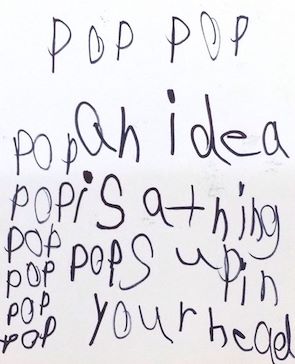 POP POP
POP an idea
POP is a thing
POP POPS up in
POP your head
POP
POP